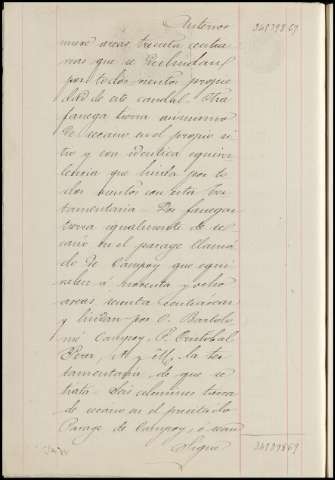 Anterior 34879869.
areas, treinta centia
reas que se
por todos vientos propie
dad de este caudal. Otra
fanega tierra asimismo
de secano en el propio si
tio y con identica equiva
lencia que linda por to
dos vientos con esta tes
tamentaria. Dos fanegas
tierra igualmente de se
cano en el parage llama
do de Campoy que equi
valen á noventa y ocho
areas centiareas
y lindan por O. Bartolo
mé Campoy, P. Cristobal
y M. la tes
tamentaria de que se
trata. Seis celemines tierra
de secano en el precitado
Parage de Campoy, ó sean
Sigue 34879869